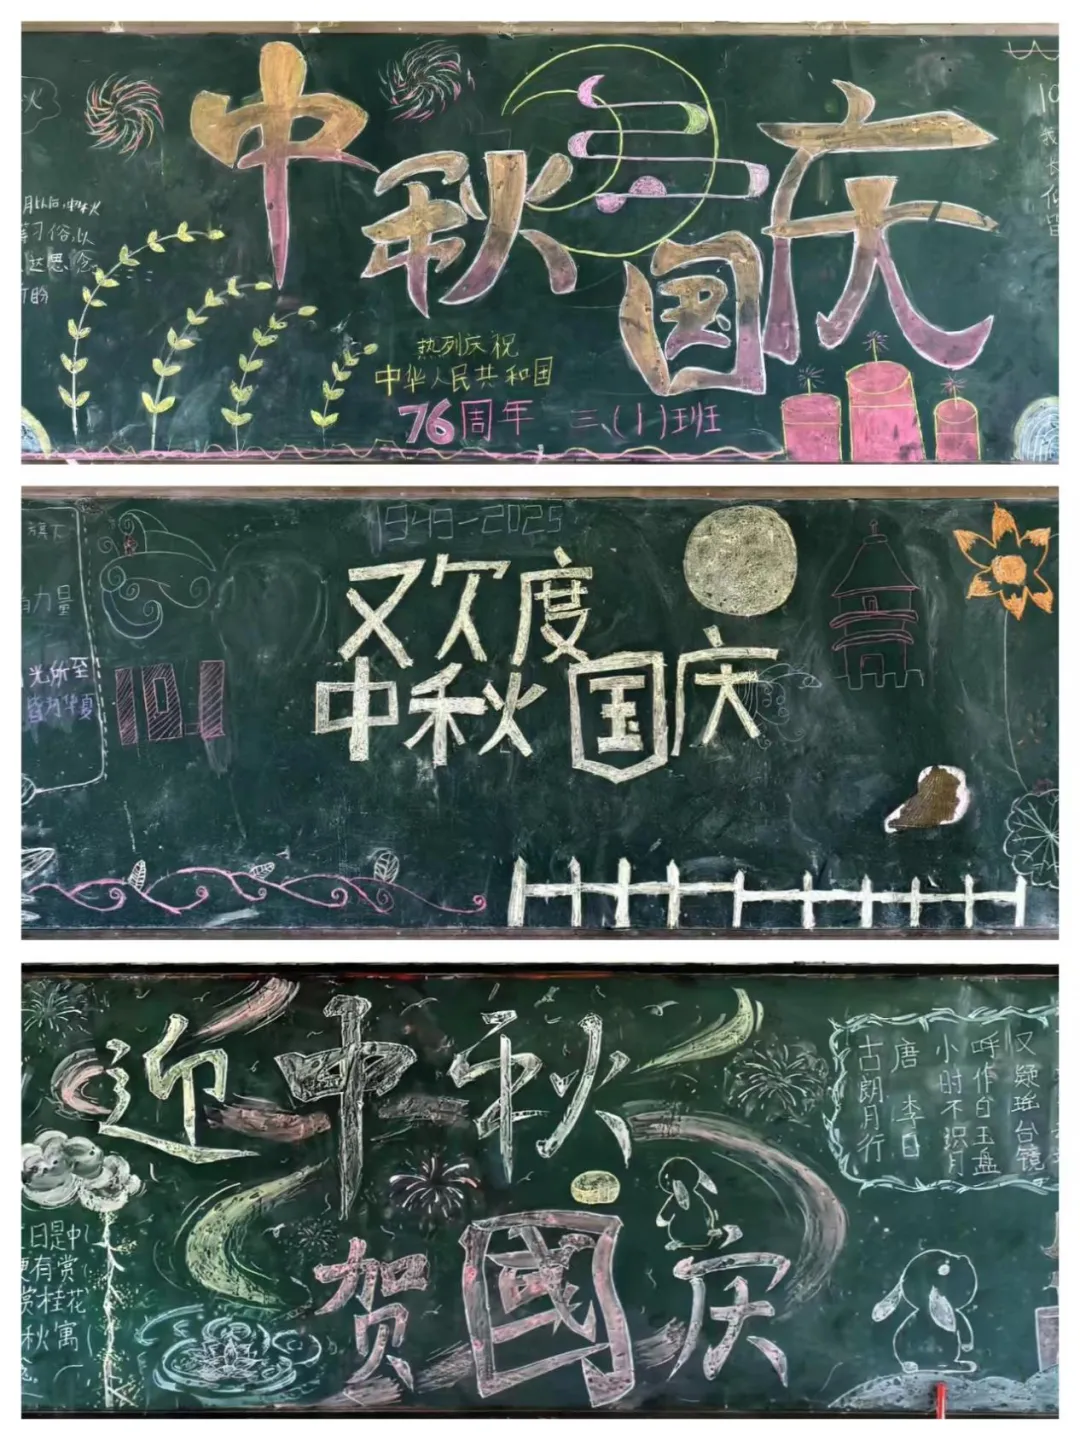 中秋国庆
月以后，中秋
等习俗，以
达思念
盼
热列庆祝
中华人民共和国
76周年 三(1)班
1949-2025
欢度
中秋国庆
旗下
力量
光所至
皆为华夏
10.1
迎中秋
贺國庆
古朗月行
唐 李白
小时不识月
呼作白玉盘
又疑瑶台镜
日是中
更有赏
赏桂花
秋寓